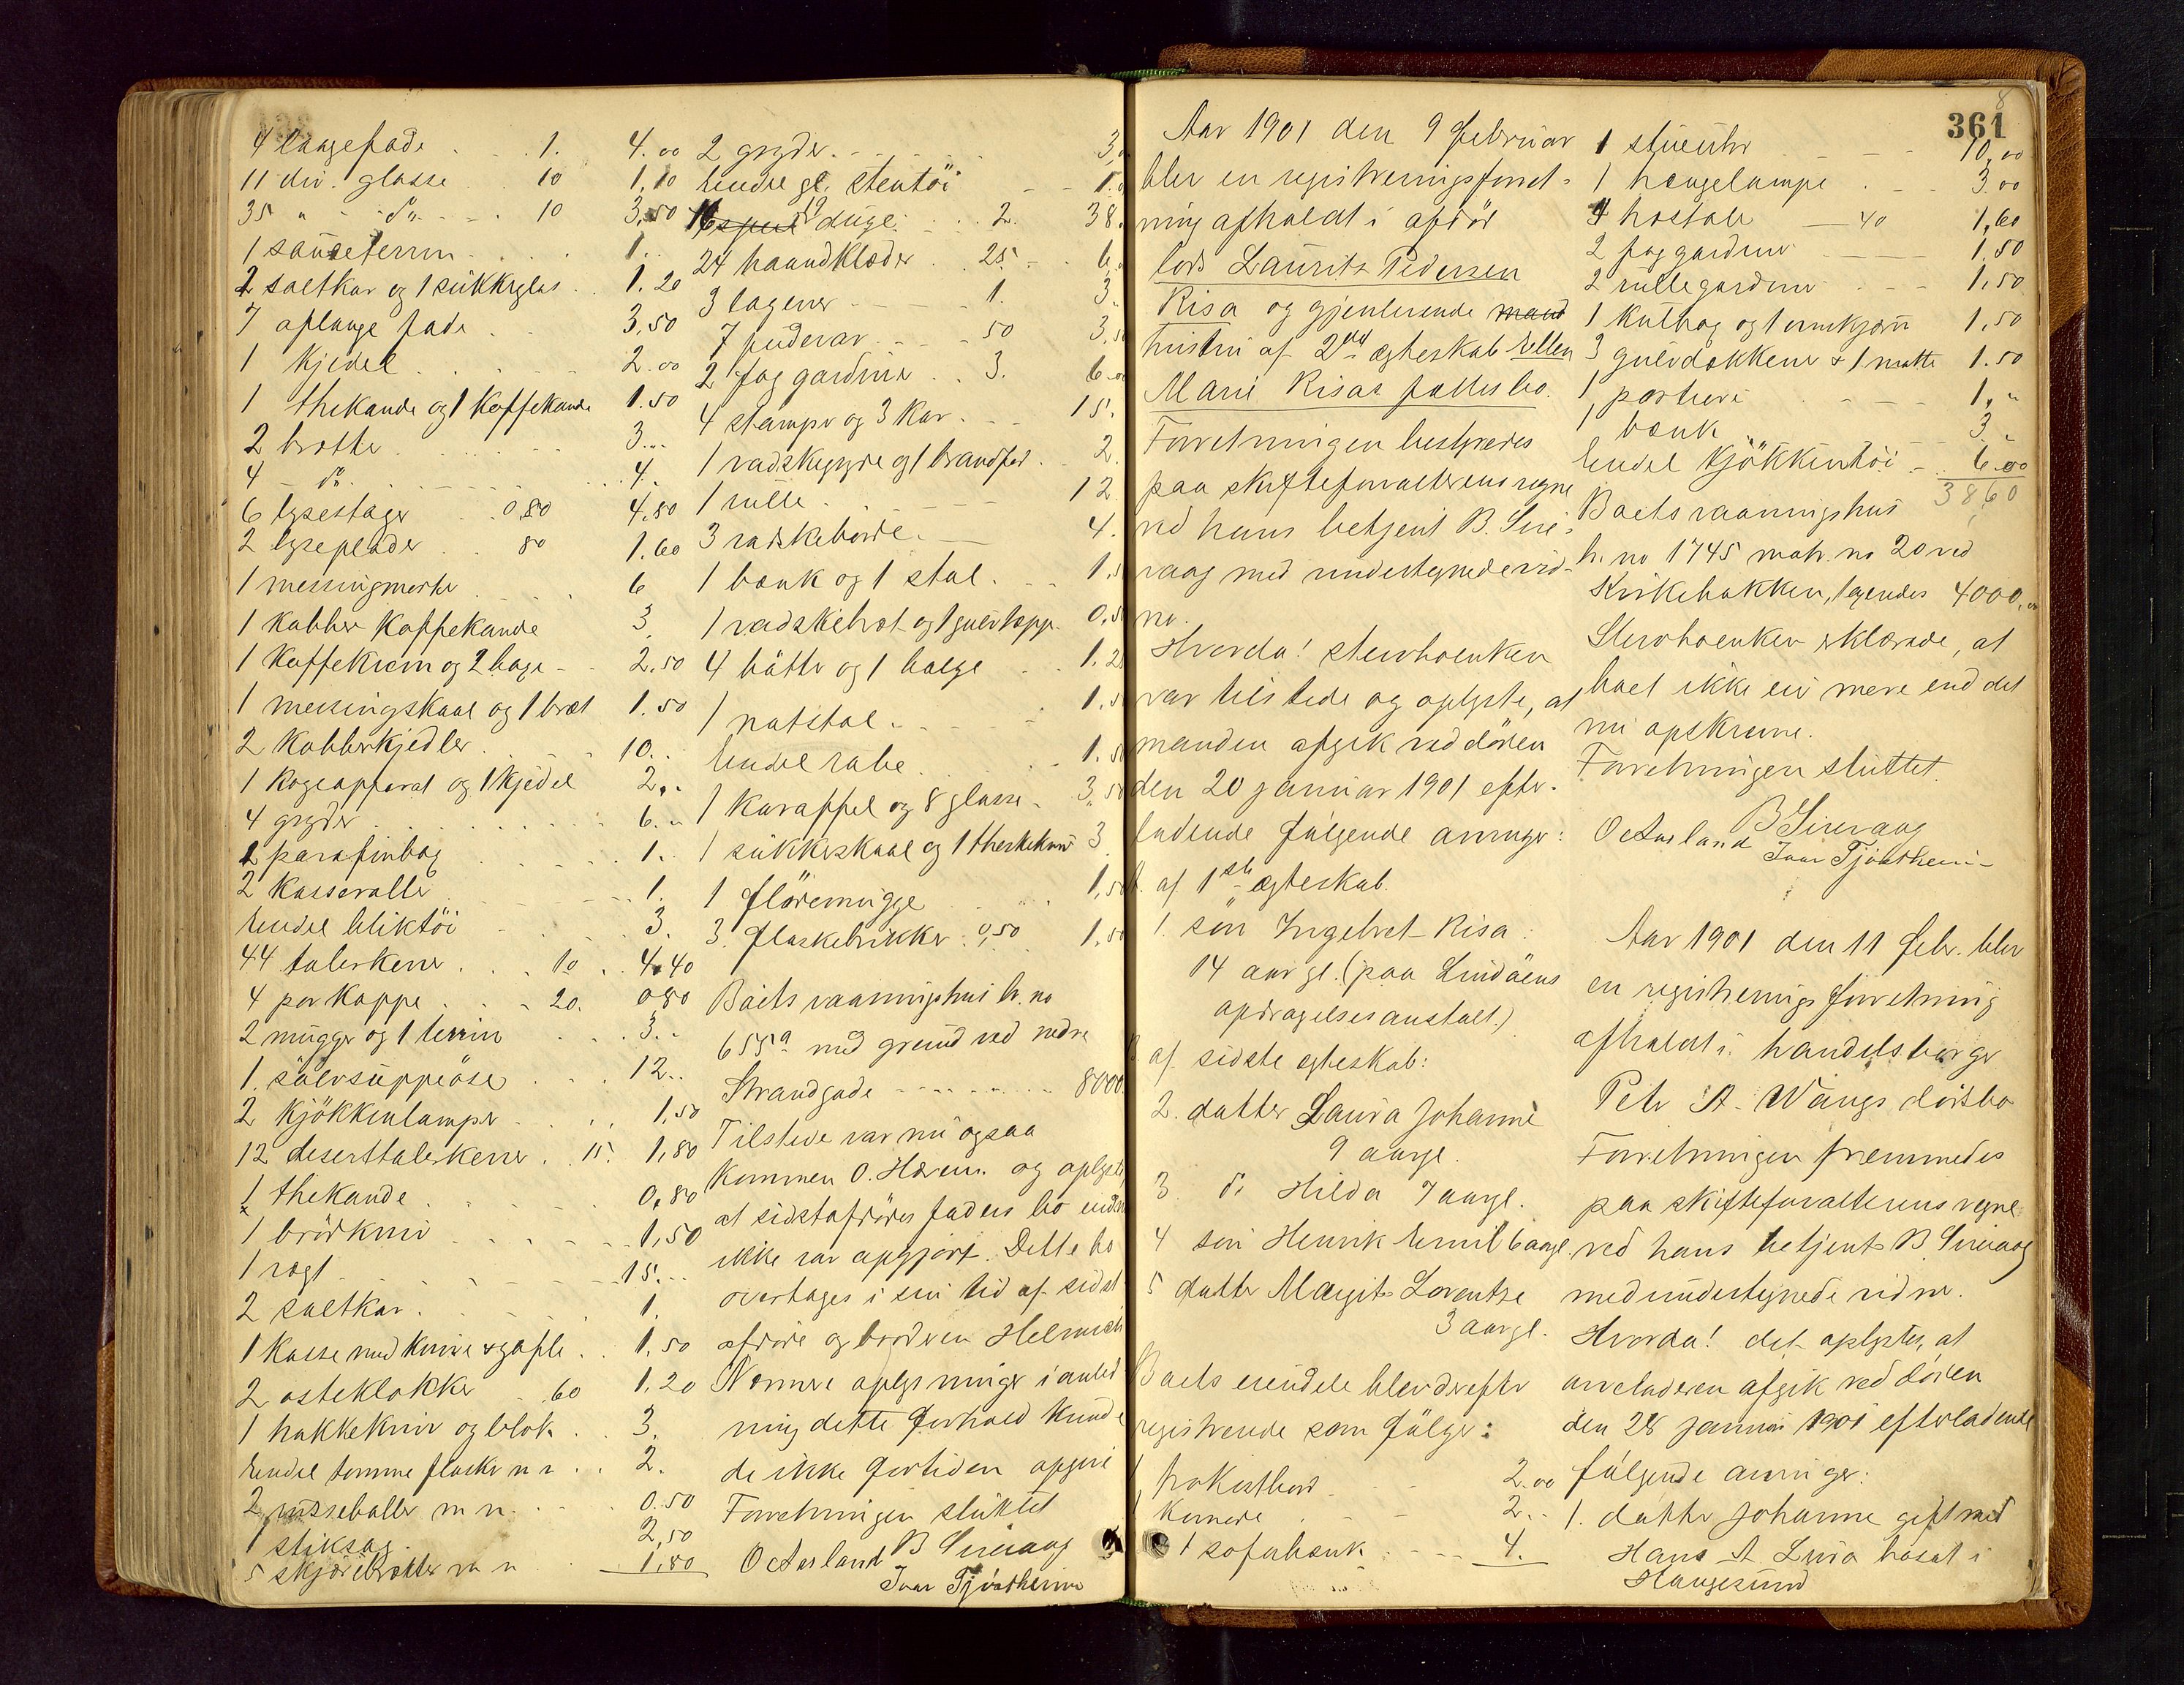 4 langefade . . 1. 4.00
11 div. glasse 10 1,10
35 " - do - - . 10 3,50
1 sauceterrin . . . . 1..
2 saltkar og 1 sukkerglas . . 1.20
7 aflange fade . . 3.50
1 kjedel . . . . 2.00
1 thekande og 1 kaffekande 1.50
2 brette . . . . 3...
4 - do. . . . . 4.
6 lysestager . . 0,80 4,80
2 lyseplader . . 80 1.60
1 messingmorter . . . 6
1 kobber kaffekande 3.
1 kaffekværn og 2 - . 2.50
1 messingskaal og 1 bræt 1.50
2 kobberkjedler . . . 10..
1 kogeapparat og 1 kjedel 2..
4 gryder . . . . 6..
1 parafinbog . . . 1..
2 kasseroller . . . 1.
Endel bliktöi . . . 3.
44 talerkener . . . 10 . . 4,40
4 par kopper . . - 20. 0,80
2 mugger og 1 terrin . . . 3..
1. sölvsuppeöse . . . 12..
2 kjökkenlamper . . . 1,50
12 deserttalerkener . . 15. 1,80
1 thekande . . . 0,80
1 brödkniv . . . 1,50
1 vægt . . . 15...
2 saltkar . . . 1.
1 kasse med knive & gafle . . 1,50
2 osteklokker - 60 1,20
1 hakkekniv og blok . . 3.
Endel tomme flasker m m . . 2.
2 m m . . 0.50
1 stiksag . 2,50
5 m m . . 1,80
2 gryder . . . 3,
Endel gl. stentöi - - 1.
19 duge . . . 2. 38.
24 haandklæder . 25 - . 6,
3 lagener - 1. 3.
7 pudevar . . . 50 3,5
2 fag gardiner . . 3. 6.00
4 stamper og 3 kar . . . 15.
1 vadskegryde og 1 brandfad . . 2.
1 rulle . . . 12
3 vadskeborde . - 4.
1 bænk og 1 stol . . . 1,5
1 vadskebræt og 1 gulvteppe 0,50
4 bötter og 1 balge . . 1.2
1 natstol . . . 1.5
Endel sabe . . . 1.50
1 karaffel og 8 glasse . 3,50
1 sukkerskaal og 1 3
1 flödemugge . . . 1,50
3. flaskebrikker . 0,50 1,50
Boets vaaningshus br. no
655a med grund ved nedre
Strandgade - - - - - 8000.
Tilstede var nu ogsaa
kommen O. Hærem og oplyste,
at sidstafdödes faders bo endnu
ikke var opgjort. Dette bo
overtages i sin tid af sidst
afdöde og broderen Helmich
Nærmere oplysninger i anled
ning dette forhold kunde
de ikke fortiden opgive
Forretningen sluttet
O Aarsland B Sirevaag
Ivar Tjøstheim
361
Aar 1901 den 9 februar
blev en registreringsforret-
ning afholdt i afdöd
lods Laurits Pedersen
Risa og gjenlevende mand
hustru af 2det ægteskab Ellen
Marie Risas fællesbo.
Forretningen bestyredes
paa skifteforvalterens vegne
ved hans betjent B. Sire-
vaag med undertegnede vid-
ne.
Hvorda! stervboenken
var tilstede og oplyste, at
manden afgik ved döden
den 20 januar 1901 efter-
ladende fölgende arvinger:
A. af 1ste ægteskab.
1. sön Ingebret Risa:
14 aar gl. (paa Lindöens
opdragelsesanstalt.)
B. af sidste ægteskab:
2. datter Laura Johanne
9 aar gl.
3. do Hilda 7 aar gl.
4 sön Henrik Emil 6 aar gl.
5 datter Margit Lorentse
3 aar gl.
Boets eiendele blev derefter
registrerede som fölger:
1 frokostbord - - - 2.00
1 komode . . - 2..
1 sofabænk . . - - 4.
1 stueuhr - - - 10,00
1 hængelampe . - - 3.00
4 hostole - 40 1,60
2 fag gardiner - - - 1,50
2 rullegardiner - - - 1,50
1 kulbog og 1 1,50
3 gulvdækkener & 1 matte 1.50
1 portiere - - - 1."
1 bænk 3.
Endel kjökkentöi - 6.00
38,60
Boets vaaningshus
br. no 1745 matr. no 20 ved
Kirkebakken, 4000,00
Stervboenken erklærede, at
boet ikke eier mere end det
nu opskrevne.
Forretningen sluttet.
B Sirevaag
O Aarsland Ivar Tjøstheim
Aar 1901 den 11 febr. blev
en registreringsforretning
afholdt i handelsborger
Peter A. Wangs dödsbo
Forretningen fremmedes
paa skifteforvalterens vegne
ved hans betjent B. Sirevaag
med undertegnede vidner.
Hvorda! det oplystes, at
arveladeren afgik ved döden
den 28 januar 1901 efterladende
fölgende arvinger:
1. datter Johanne gift med
Hans A Lura bosat i
Haugesund